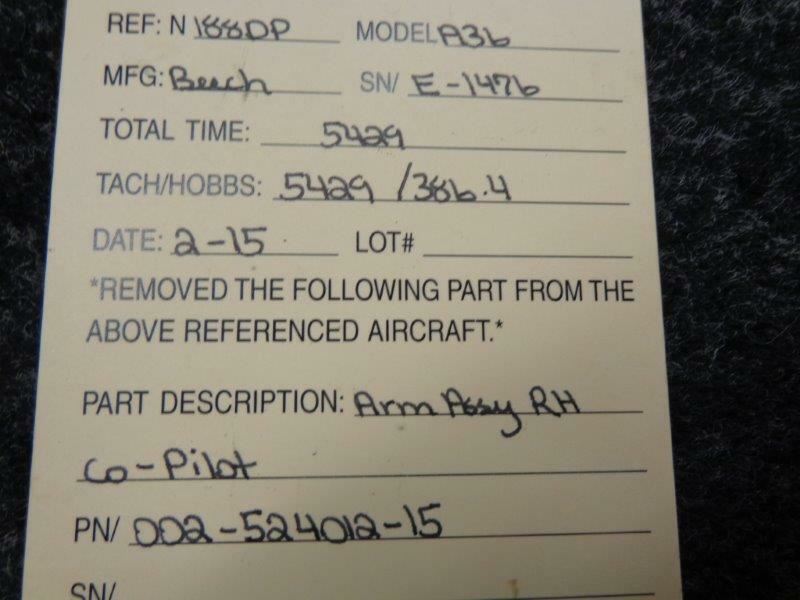 REF: N 188DP MODEL A36
MFG: Beech SN/ E-1476
TOTAL TIME: 5429
TACH/HOBBS: 5429 /386.4
DATE: 2-15 LOT#
*REMOVED THE FOLLOWING PART FROM THE
ABOVE REFERENCED AIRCRAFT.*
PART DESCRIPTION: Arm Assy RH
Co-Pilot
PN/ 002-524012-15
SN/